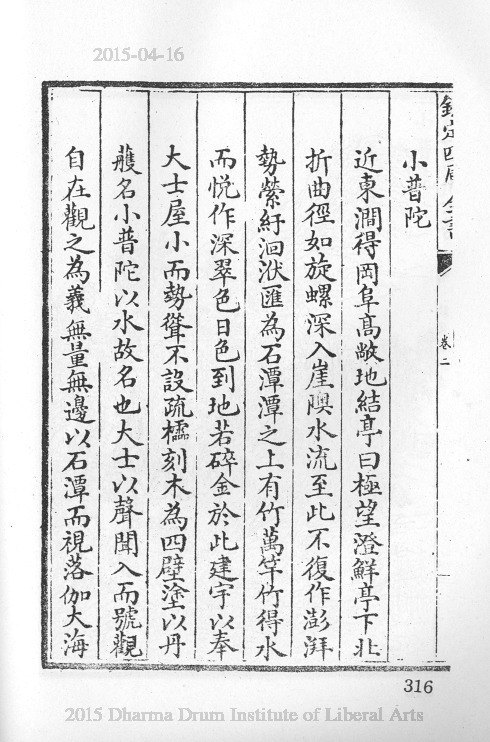 2015-04-16
欽定四庫全書
卷二
小普陀
近東澗得岡阜髙敞地結亭曰極望澄鮮亭下北
折曲徑如旋螺深入崖隩水流至此不復作澎湃
勢縈紆洄洑匯為石潭潭之上有竹萬竿竹得水
而悦作深翠色日色到地若碎金於此建宇以奉
大士屋小而勢聳不設疏櫺刻木為四壁塗以丹
雘名小普陀以水故名也大士以聲聞入而號觀
自在觀之為義無量無邊以石潭而視落伽大海
316
2015 Dharma Drum Institute of Liberal Arts